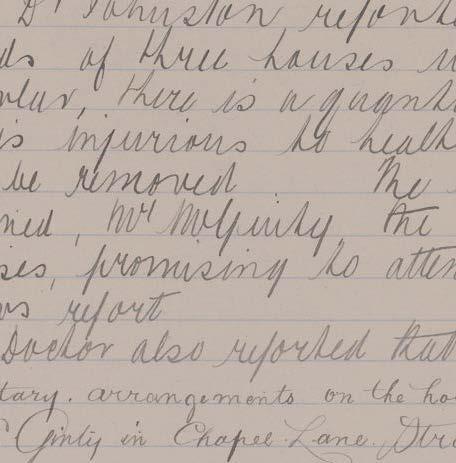 Dr Johnston reporte
ds of three houses
ular, there is a quanti
is injurious to health
be removed. The
ned, Mr McGinty the
ses, promising to atten
rs report
Doctor also reported that
tary. arrangements on the ho
Ginty in Chapel Lane. Stra